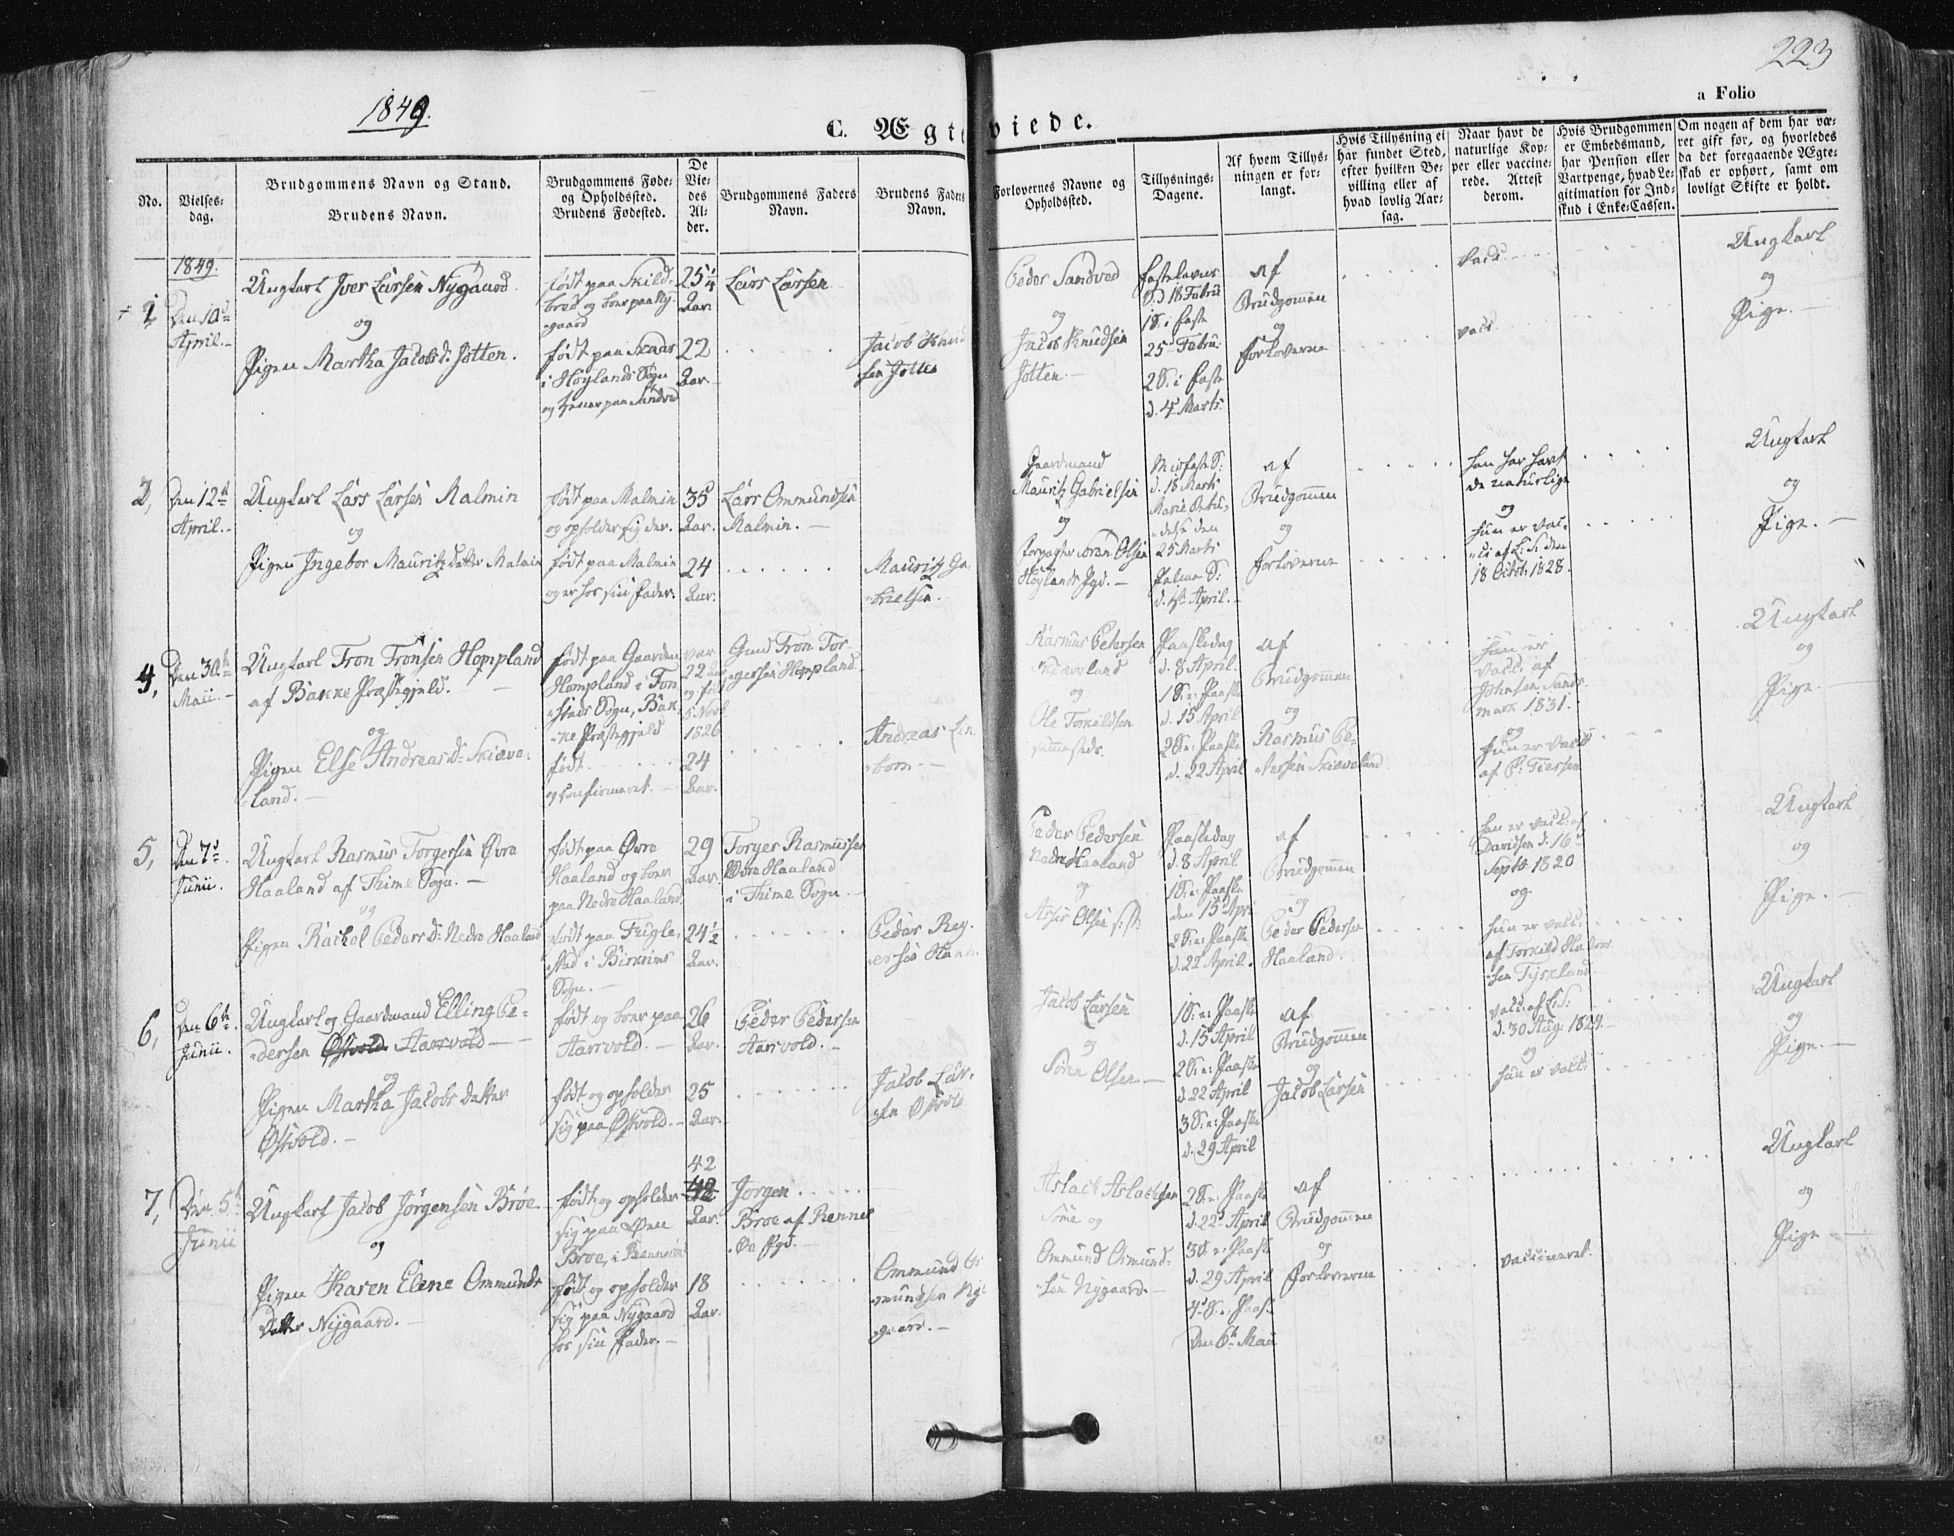 1849.
223
a Folio
C. Ægteviede.
No.
Vielses-
dag.
Brudgommens Navn og Stand.
Brudens Navn.
Brudgommens Føde-
og Opholdssted.
Brudens Fødested.
De
Vie-
des
Al-
der.
Brudgommens Faders
Navn.
Brudens Faders
Navn.
Forlovernes Navne og
Opholdssted.
Tillysnings-
Dagene.
Af hvem Tillys-
ningen er for-
langt.
Hvis Tillysning ei
har fundet Sted,
efter hvilken Be-
villing eller af
hvad lovlig Aar-
sag.
Naar havt de
naturlige Kop-
per eller vaccine-
rede. Attest
derom.
Hvis Brudgommen
er Embedsmand,
har Pension eller
Vartpenge, hvad Le-
gitimation for Ind-
skud i Enke-Cassen.
Om nogen af dem har væ-
ret gift før, og hvorledes
da det foregaaende Ægte-
skab er ophørt, samt om
lovligt Skifte er holdt.
1849.
1
Den 10de
April.
Ungkarl Iver Larsen Nygaard
og
Pigen Martha Jacobsd: Jotten.
født paa Skild-
og boer paa Ny-
gaard
født paa
i Høylands Sogn
25 1/4
Aar.
22
Aar.
Lars Larsen
Jacob Knud
sen Jotten
Peder Sandved
og
Jacob Knudsen
Jotten.
Fastelavns
S: d 18 Febru
1 S: i Faste
25 Febru:
2 S: i Faste
d. 4 Marts.
af
Brudgommen
og
Forloverne
vacc.
Ungkarl
og
Pige.
2,
Den 12te
April.
Ungkarl Lars Larsen Malmin
og
Pigen Ingebor Mauritz Datter Malmin
født paa Malmin
og opholder sig der.
født paa Malmin
og er hos sin Fader.
35
Aar.
24
Aar.
Lars Ommundsen
Malmin.
Mauritz Ga-
brielsen.
Gaardmand
Mauritz Gabrielsen
og
Forpagter Søren Olsen
Høylands Pgd.
Midfaste S:
d. 18 Marts
Mariæ Bebu-
delse den
25 Marts
Palme S:
d. 1ste April.
af
Brudgommen
og
Forloverne
han har havt
de naturlige
og
hun er vac-
ci af L: S: den
18 Octob: 1828.
Ungkarl
og
Pige.
4,
Den 30te
Maii.
Ungkarl Tron Tronsen Hompland
af Bakke Præstegjeld.
og
Pigen Else Andreasd: Skiæve-
land.
født paa Gaarden
Hompland i Ton
stads Sogn, Bak-
ke Præstegjeld
født
og confirmeret.
var
22 Aar
og født
5 Nov
1826
24
Aar.
Gmd Tron Tor-
gersen Hompland.
Andreas Een
boen.
Rasmus Pedersen
Skiæveland
og
Ole Torkildsen
sammesteds.
Paaskedag
d. 8 April.
1 S: e: Paaske
d. 15 April
2 S: e: Paaske
d. 22 April
af
Brudgommen
og
Rasmus Pe-
dersen Skiæveland
hun er
vacc. af
Johnsen
1831.
og
hun er vacci
af P:
Ungkarl
og
Pige.
5,
Den 7de
Junii.
Ungkarl Rasmus Torgersen Øvre
Haaland af Thime Sogn.
og
Pigen Rachel Pedersd: Nedre Haaland
født paa Øvre
Haaland og boer
paa Nedre Haaland.
født paa Fugle-
stad i Birkrims
Sogn.
29
Aar.
24 1/2
Aar.
Torger Rasmussen
Øvre Haaland
i Thime Sogn.
Peder Reg-
ersen Haa
Peder Pedersen
Nedre Haaland
og
Asser Olsen
Paaskedag
d. 8 April.
1 S: e: Paaske
den 15 April
2 S: e: Paaske
d. 22 April.
af
Brudgommen
og
Peder Pedersen
Haaland.
han er vacc. af
Davidsen d. 16de
Septb 1820
og
hun er vacc.
af Torkild Halvor
sen Tyskland.
Ungkarl
og
Pige.
6,
Den 6te
Junii.
Ungkarl og Gaardmand Elling Pe-
dersen Østvold Aarrvold
og
Pigen Martha Jacobs Datter
Østvold.
født og boer paa
Aarrvold.
født og opholder
sig paa Østvold.
26
Aar.
25
Aar.
Peder Pedersen
Aarrvold.
Jacob Lar-
sen Østvold
Jacob Larsen
og
Sören Olsen
1 S: e: Paaske
d. 15 April
2 S: e: Paaske
d. 22 April
3 S: e: Paaske
d. 29 April
af
Brudgommen
og
Jacob Larsen
vacc. af L: S:
d. 30 Aug: 1824.
og
hun er vacci
Ungkarl
og
Pige.
7,
Den 5te
Junii
Ungkarl Jacob Jørgensen Brøe.
og
Pigen Karen Elene Ommunds
Datter Nygaard.
født og opholder
sig paa Øen
Broe, i Rennesøe
født og opholder
sig paa Nygaard
hos sin Fader.
42
42
Aar.
18
Aar.
Jörgen
Broe af Rennes
Øe Pgd.
Ommund Os
mundsen Ny-
gaard.
Aslach Aslachsen
Sömé og
Ommund Osmund-
sen Nygaard.
2 S: e: Paaske
d. 22 April
3 S: e: Paaske
d. 29 April
4 S: e: Paaske
den 6te Maii
af
Brudgommen
og
Forloverne
vaccineret.
Ungkarl
og
Pige